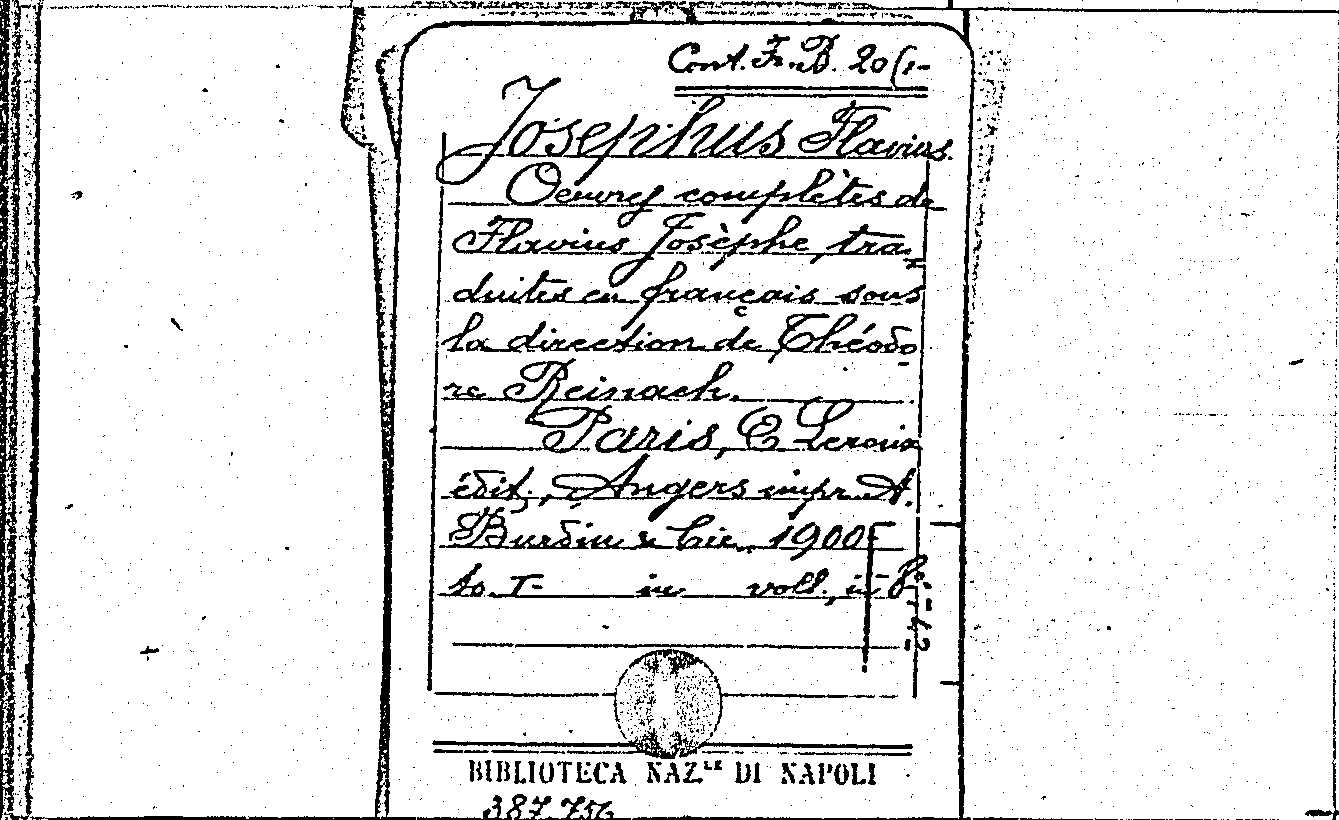 Cont. Fr. B. 20 (1-
Josephus Flavius.
Oeuvres complètes de
Flavius Josèphe, tra=
duites en français sous
la direction de Théodo
re Reinach.
Paris, E Leroux
édit., Angers impr. A.
Burdin & Cie., 1900
to. I- in voll., in 8o.
BIBLIOTECA NAZLE DI NAPOLI
387.756